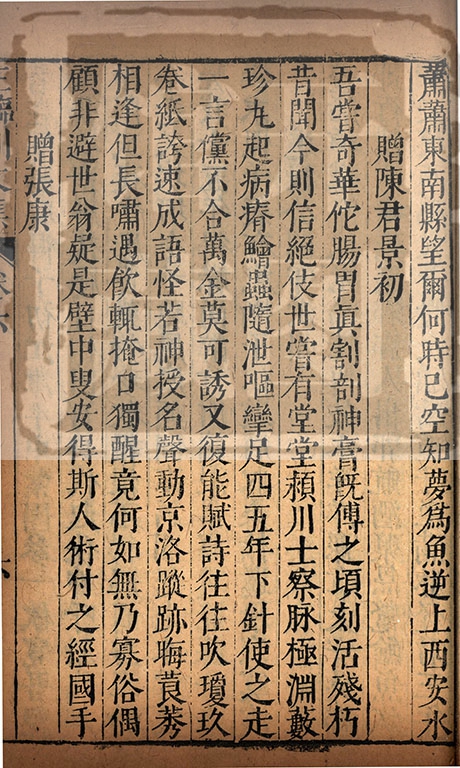 蕭蕭東南縣望爾何時已空知夢為魚逆上西安水
贈陳君景初
吾嘗奇華佗腸胃真割剖神膏既傅之頃刻活殘朽
昔聞今則信絕伎世嘗有堂堂潁川士察脉極淵藪
珍丸起病瘠鱠蟲隨泄嘔攣足四五年下針使之走
一言儻不合萬金莫可誘又復能賦詩往往吹瓊玖
卷紙誇速成語怪若神授名聲動京洛蹤跡晦莨莠
相逢但長嘯遇飲輒掩口獨醒竟何如無乃寡俗偶
顧非避世翁疑是壁中叟安得斯人術付之經國手
贈張康